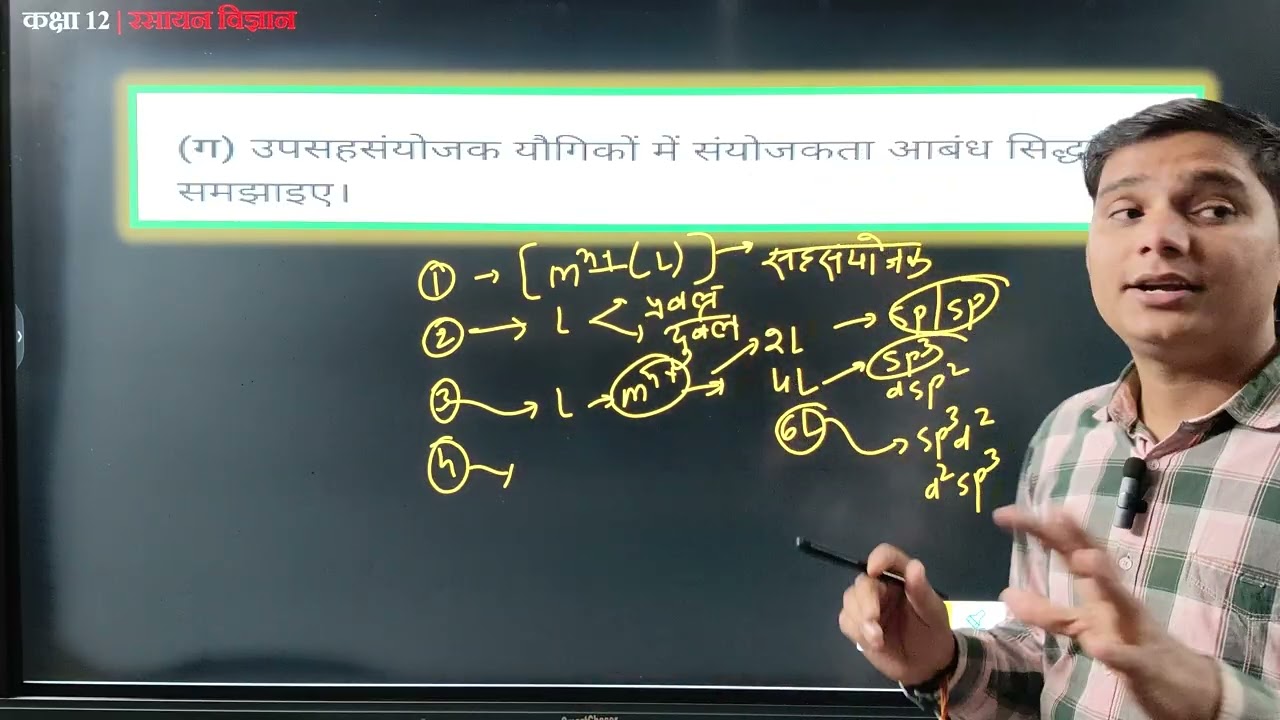 कक्षा 12 | रसायन विज्ञान
(ग) उपसहसंयोजक यौगिकों में संयोजकता आबंध
समझाइए।
① → [mⁿ⁺(L)] → सहसंयोजक
② → L < प्रबल
दुर्बल
2L → sp/sp
③ → L → mⁿ⁺ → 4L → sp³
dsp²
6L → sp³d²
d²sp³
④ →